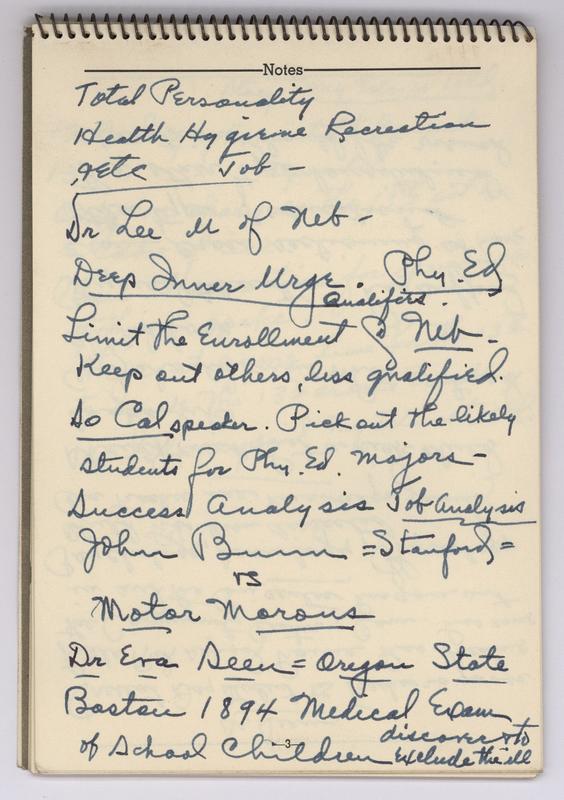 Notes
Total Personality
Health Hygiene Recreation
, etc Job -
Dr Lee U of Neb -
Deep Inner Urge. Phy. Ed
Qualifiers.
Limit the Enrollment @ Neb -
Keep out others, less qualified.
So Cal speaker. Pick out the likely
students for Phy. Ed. majors -
Success Analysis Job Analysis
John Bunn = Stanford =
vs
Motor Morons
Dr Eva Seen = Oregon State
Boston 1894 Medical Exam
of School Children discover + to
exclude the ill
3